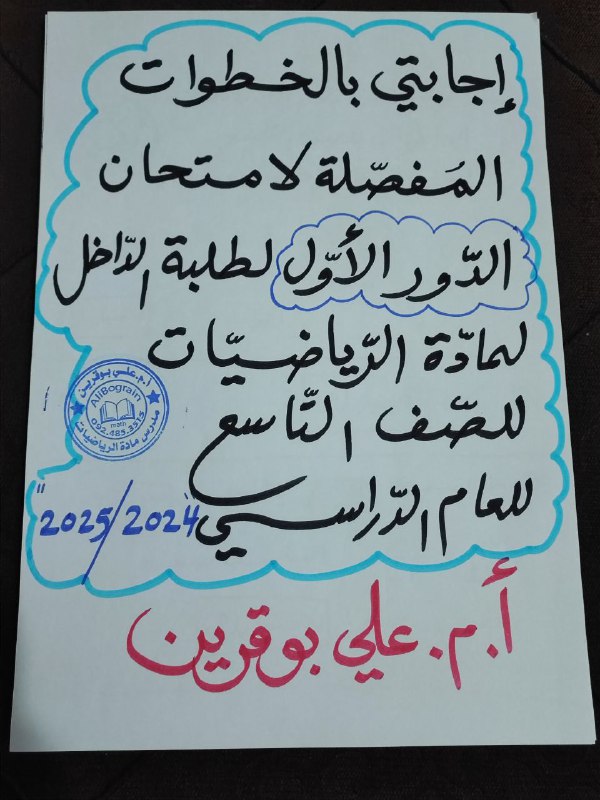 إجابتي بالخطوات
المُفصّلة لامتحان
الدّور الأوّل لطلبة الدّاخل
لمادّة الرّياضيّات
للصّف التّاسع
للعام الدّراسي 2025/2024 "
أ.م.علي بوقرين
أ.م.علي بوقرين
AliBograin
math
092.485.3515
مدرس مادة الرياضيات